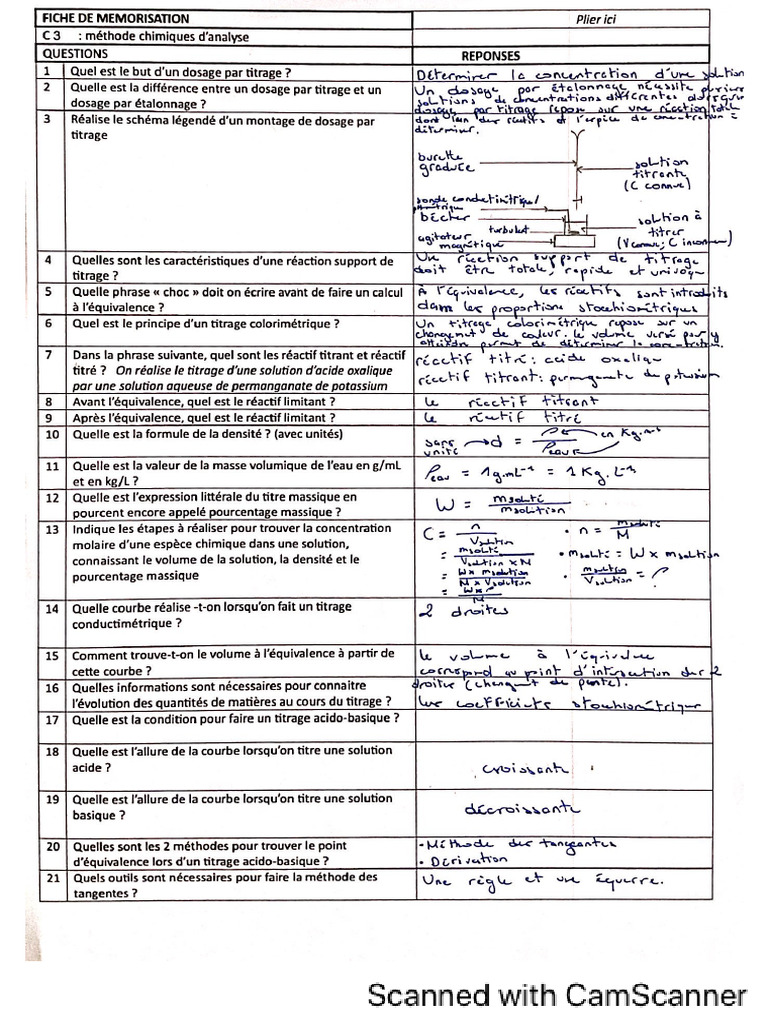 FICHE DE MEMORISATION
Plier ici
C 3 : méthode chimiques d'analyse
QUESTIONS
REPONSES
1 Quel est le but d'un dosage par titrage ?
Déterminer la concentration d'une solution
2 Quelle est la différence entre un dosage par titrage et un
dosage par étalonnage ?
Un dosage par étalonnage nécessite
solutions de concentrations différentes
dosage par titrage repose sur une réaction totale
dont l'un des réactifs est l'espèce de concentration à
déterminer.
3 Réalise le schéma légendé d'un montage de dosage par
titrage
burette
graduée
solution
titrante
(C connue)
sonde conductimétrique/
bécher
turbulent
agitateur
magnétique
solution à
titrer
(V connue; C inconnue)
4 Quelles sont les caractéristiques d'une réaction support de
titrage ?
Une réaction support de titrage
doit être totale, rapide et univoque
5 Quelle phrase « choc » doit on écrire avant de faire un calcul
à l'équivalence ?
À l'équivalence, les réactifs sont introduits
dans les proportions stoechiométriques
6 Quel est le principe d'un titrage colorimétrique ?
Un titrage colorimétrique repose sur un
changement de couleur. le volume versé pour y
atteindre permet de déterminer la concentration.
7 Dans la phrase suivante, quel sont les réactif titrant et réactif
titré ? On réalise le titrage d'une solution d'acide oxalique
par une solution aqueuse de permanganate de potassium
réactif titré : acide oxalique
réactif titrant : permanganate de potassium
8 Avant l'équivalence, quel est le réactif limitant ?
le réactif titrant
9 Après l'équivalence, quel est le réactif limitant ?
le réactif titré
10 Quelle est la formule de la densité ? (avec unités)
sans unité → d = ρ / ρeau ← en Kg.m⁻³
11 Quelle est la valeur de la masse volumique de l'eau en g/mL
et en kg/L ?
ρeau = 1g.mL⁻¹ = 1Kg.L⁻¹
12 Quelle est l'expression littérale du titre massique en
pourcent encore appelé pourcentage massique ?
W = msoluté / msolution
13 Indique les étapes à réaliser pour trouver la concentration
molaire d'une espèce chimique dans une solution,
connaissant le volume de la solution, la densité et le
pourcentage massique
C = n / Vsolution
• n = msoluté / M
= msoluté / Vsolution x M
• msoluté = W x msolution
= W x msolution / M x Vsolution
• msolution / Vsolution = ρ
= W x ρ / M
14 Quelle courbe réalise -t-on lorsqu'on fait un titrage
conductimétrique ?
2 droites
15 Comment trouve-t-on le volume à l'équivalence à partir de
cette courbe ?
le volume à l'équivalence
correspond au point d'intersection des 2
droites (changement de pente).
16 Quelles informations sont nécessaires pour connaitre
l'évolution des quantités de matières au cours du titrage ?
les coefficients stoechiométrique
17 Quelle est la condition pour faire un titrage acido-basique ?
18 Quelle est l'allure de la courbe lorsqu'on titre une solution
acide ?
croissante
19 Quelle est l'allure de la courbe lorsqu'on titre une solution
basique ?
décroissante
20 Quelles sont les 2 méthodes pour trouver le point
d'équivalence lors d'un titrage acido-basique ?
• Méthode des tangentes
• Dérivation
21 Quels outils sont nécessaires pour faire la méthode des
tangentes ?
Une règle et une équerre.
Scanned with CamScanner